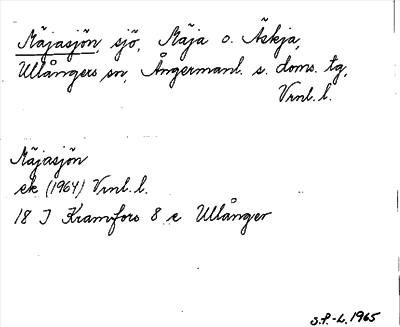 Mäjasjön, sjö, Mäja o. Äskja,
Ullångers sn, Ångermanl. s. doms. tg,
Vrnl. l.
Mäjasjön
ek (1964) Vrnl. l.
18 J Kramfors 8 e Ullånger
S.P.-L. 1965